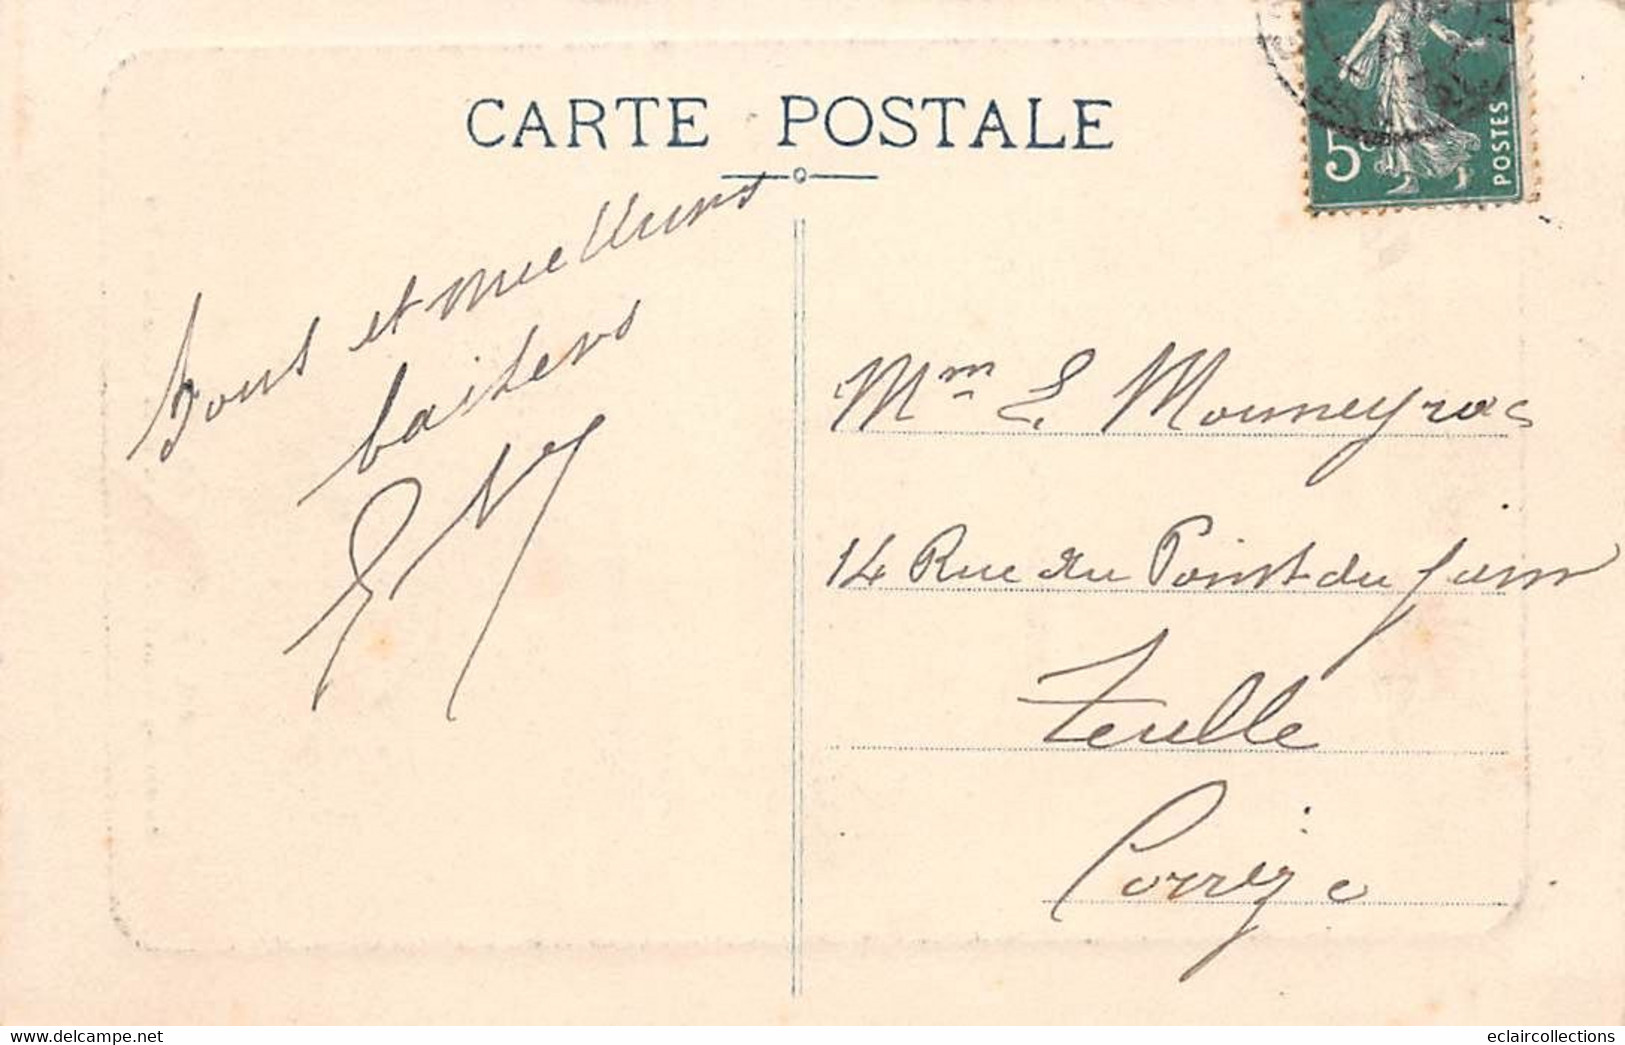 CARTE POSTALE
5c POSTES
Bons et meilleurs
baisers
Mme E. Moumeyrac
14 Rue du Point du Jour
Teulle
Corrèze
eclaircollections